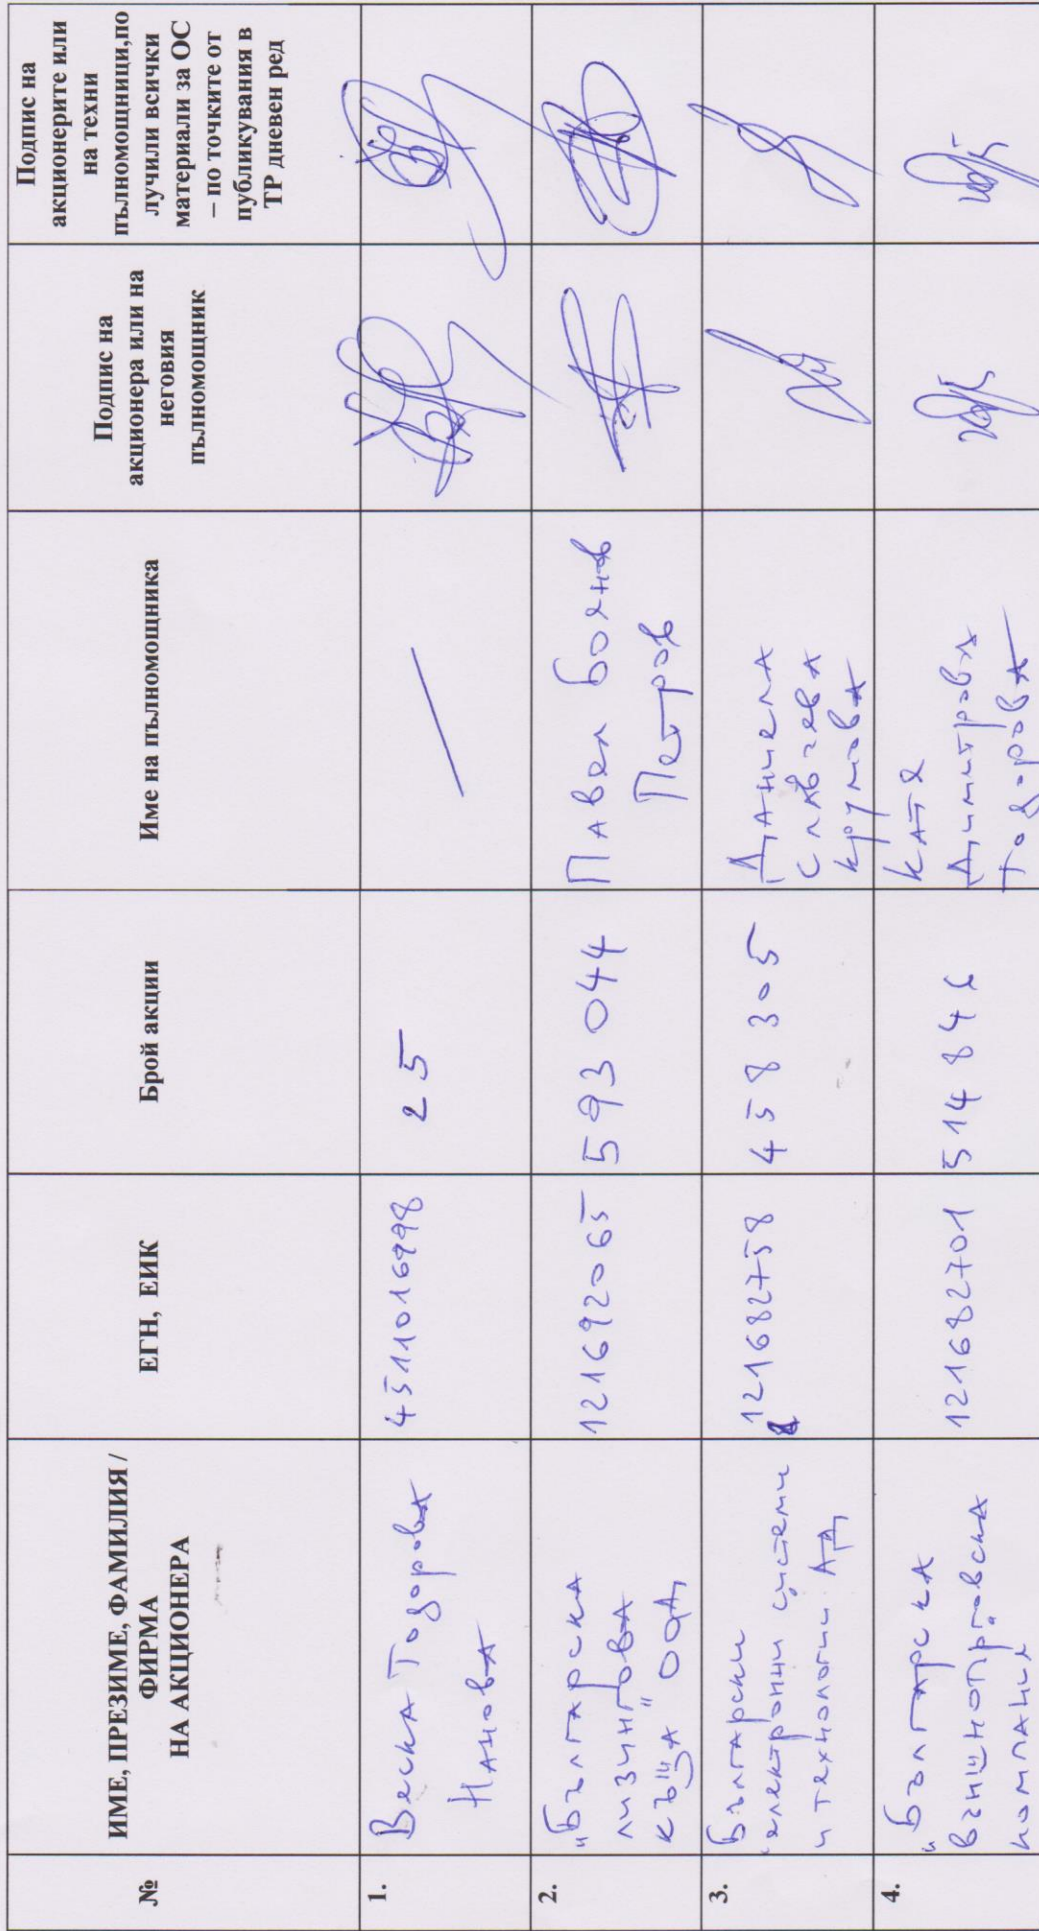 №
ИМЕ, ПРЕЗИМЕ, ФАМИЛИЯ /
ФИРМА
НА АКЦИОНЕРА
ЕГН, ЕИК
Брой акции
Име на пълномощника
Подпис на
акционера или на
неговия
пълномощник
Подпис на
акционерите или
на техни
пълномощници,по
лучили всички
материали за ОС
– по точките от
публикувания в
ТР дневен ред
1.
Веска Тодорова
Нанова
4511016998
25
2.
"Българска
лизингова
къща" ООД
121692065
593044
Павел Боянов
Петров
3.
Български
електронни системи
и технологии АД
121682758
458305
Даниела
Славчева
Крумова
4.
"Българска
компания
121682701
Катя
Димитрова
Тодорова